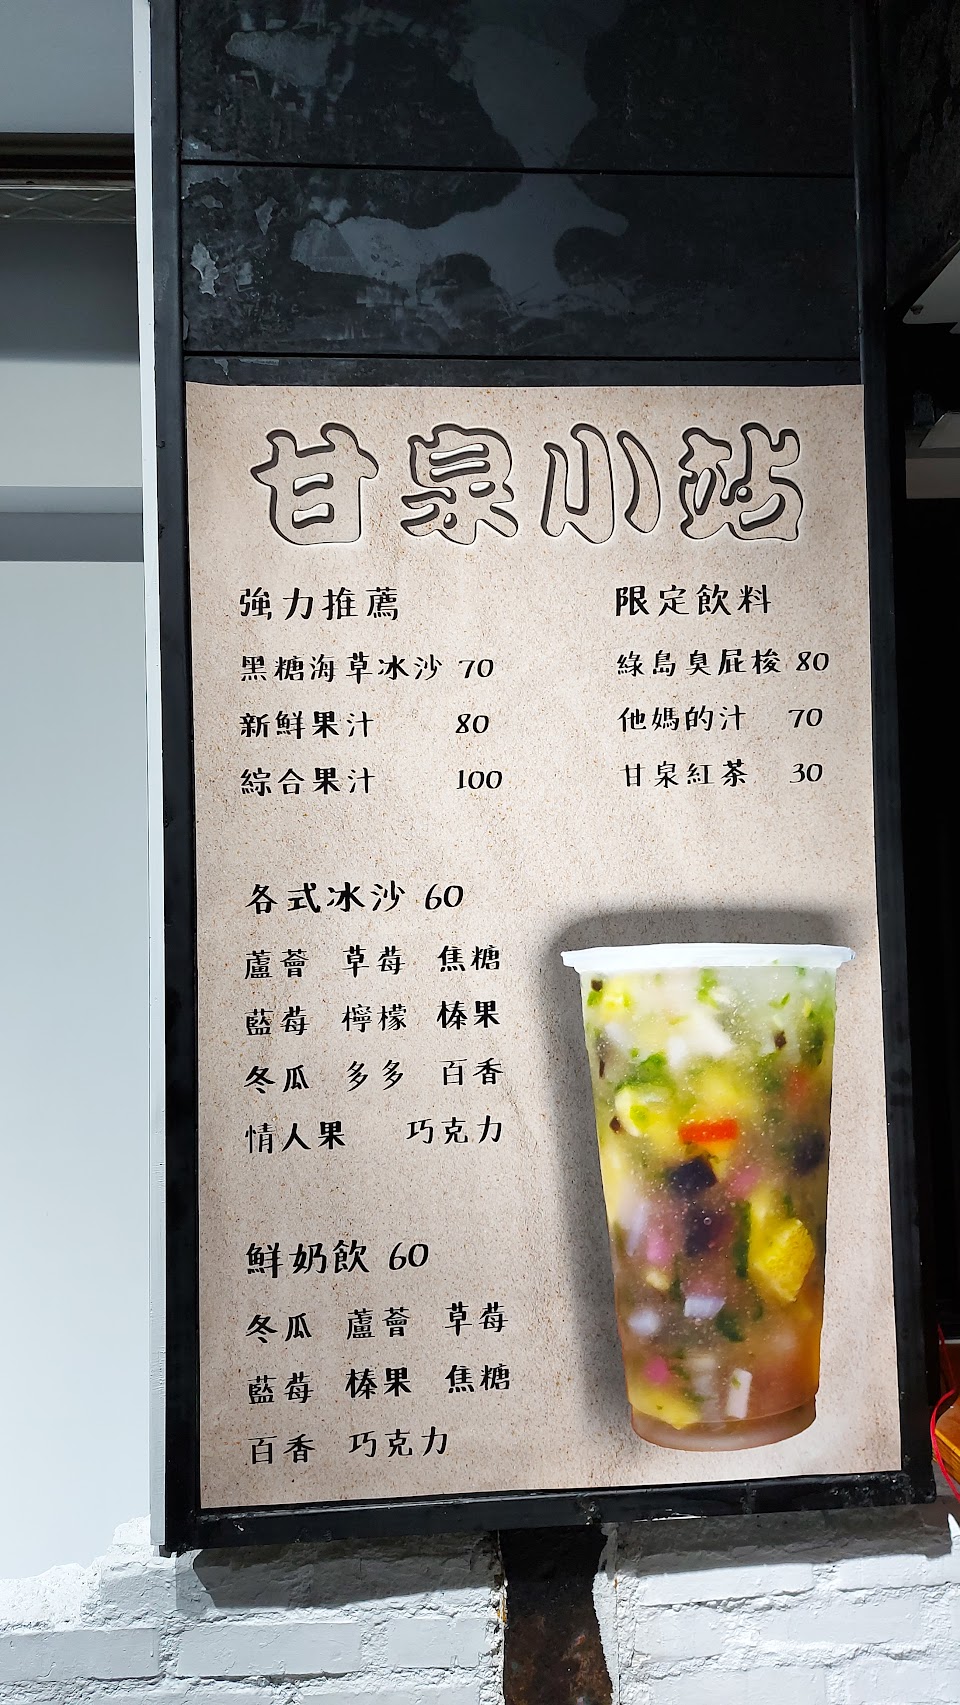 甘泉小站
強力推薦
黑糖海草冰沙 70
新鮮果汁 80
綜合果汁 100
限定飲料
綠島臭屁梭 80
他媽的汁 70
甘泉紅茶 30
各式冰沙 60
蘆薈 草莓 焦糖
藍莓 檸檬 榛果
冬瓜 多多 百香
情人果 巧克力
鮮奶飲 60
冬瓜 蘆薈 草莓
藍莓 榛果 焦糖
百香 巧克力